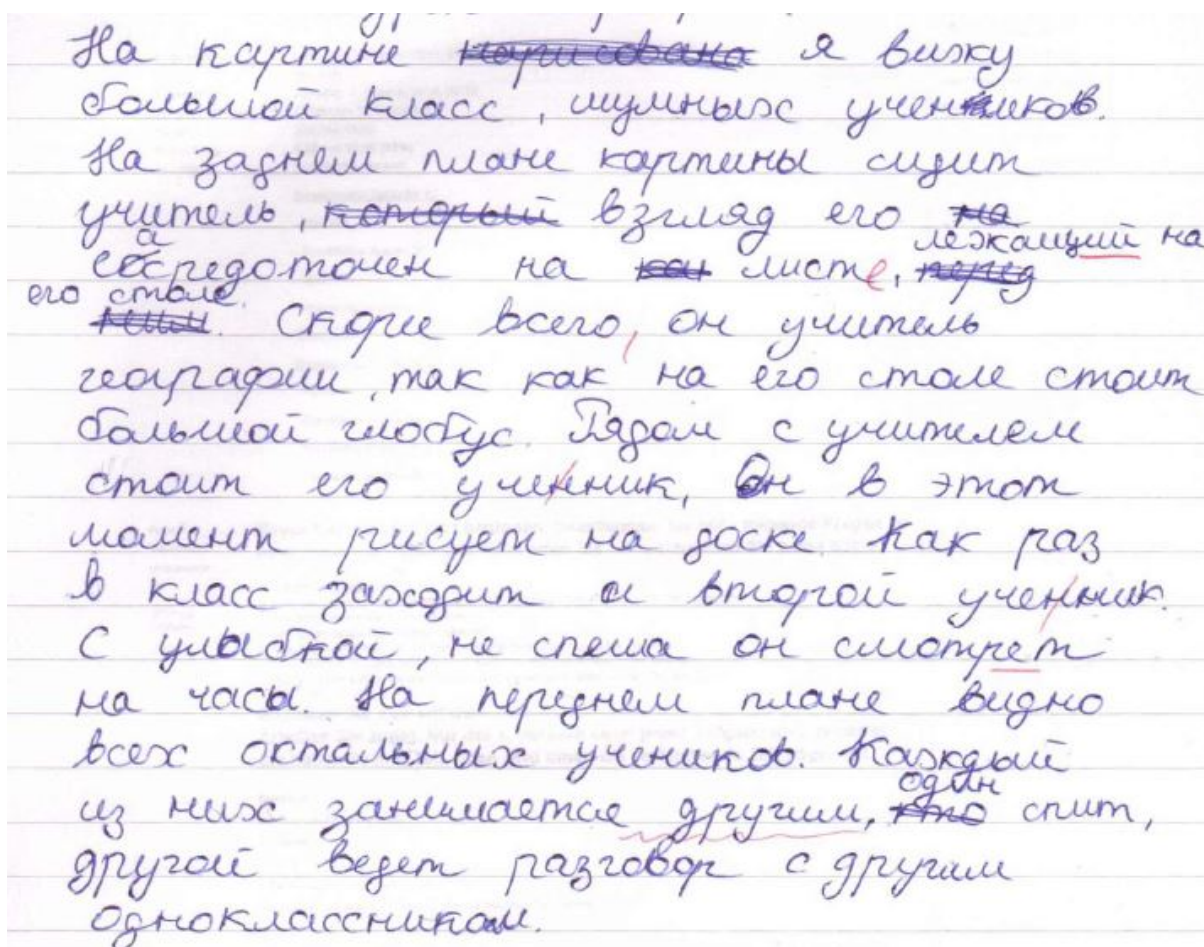 На картине нарисована я вижу
большой класс, шумных учеников.
На заднем плане картины сидит
учитель, который взгляд его на
лежащий на
сасредоточен на как листе, перед
его столе.
ним. Скорие всего, он учитель
географии, так как на его столе стоит
большой глобус. Рядом с учителем
стоит его ученник, Он в этот
момент рисует на доске. Как раз
в класс заходит и второй ученник.
С улыбкой, не спеша он смотрет
на часы. На переднем плане видно
всех остальных учеников. Каждый
один
из них занимается другим, кто спит,
другой ведет разговор с другим
одноклассником.